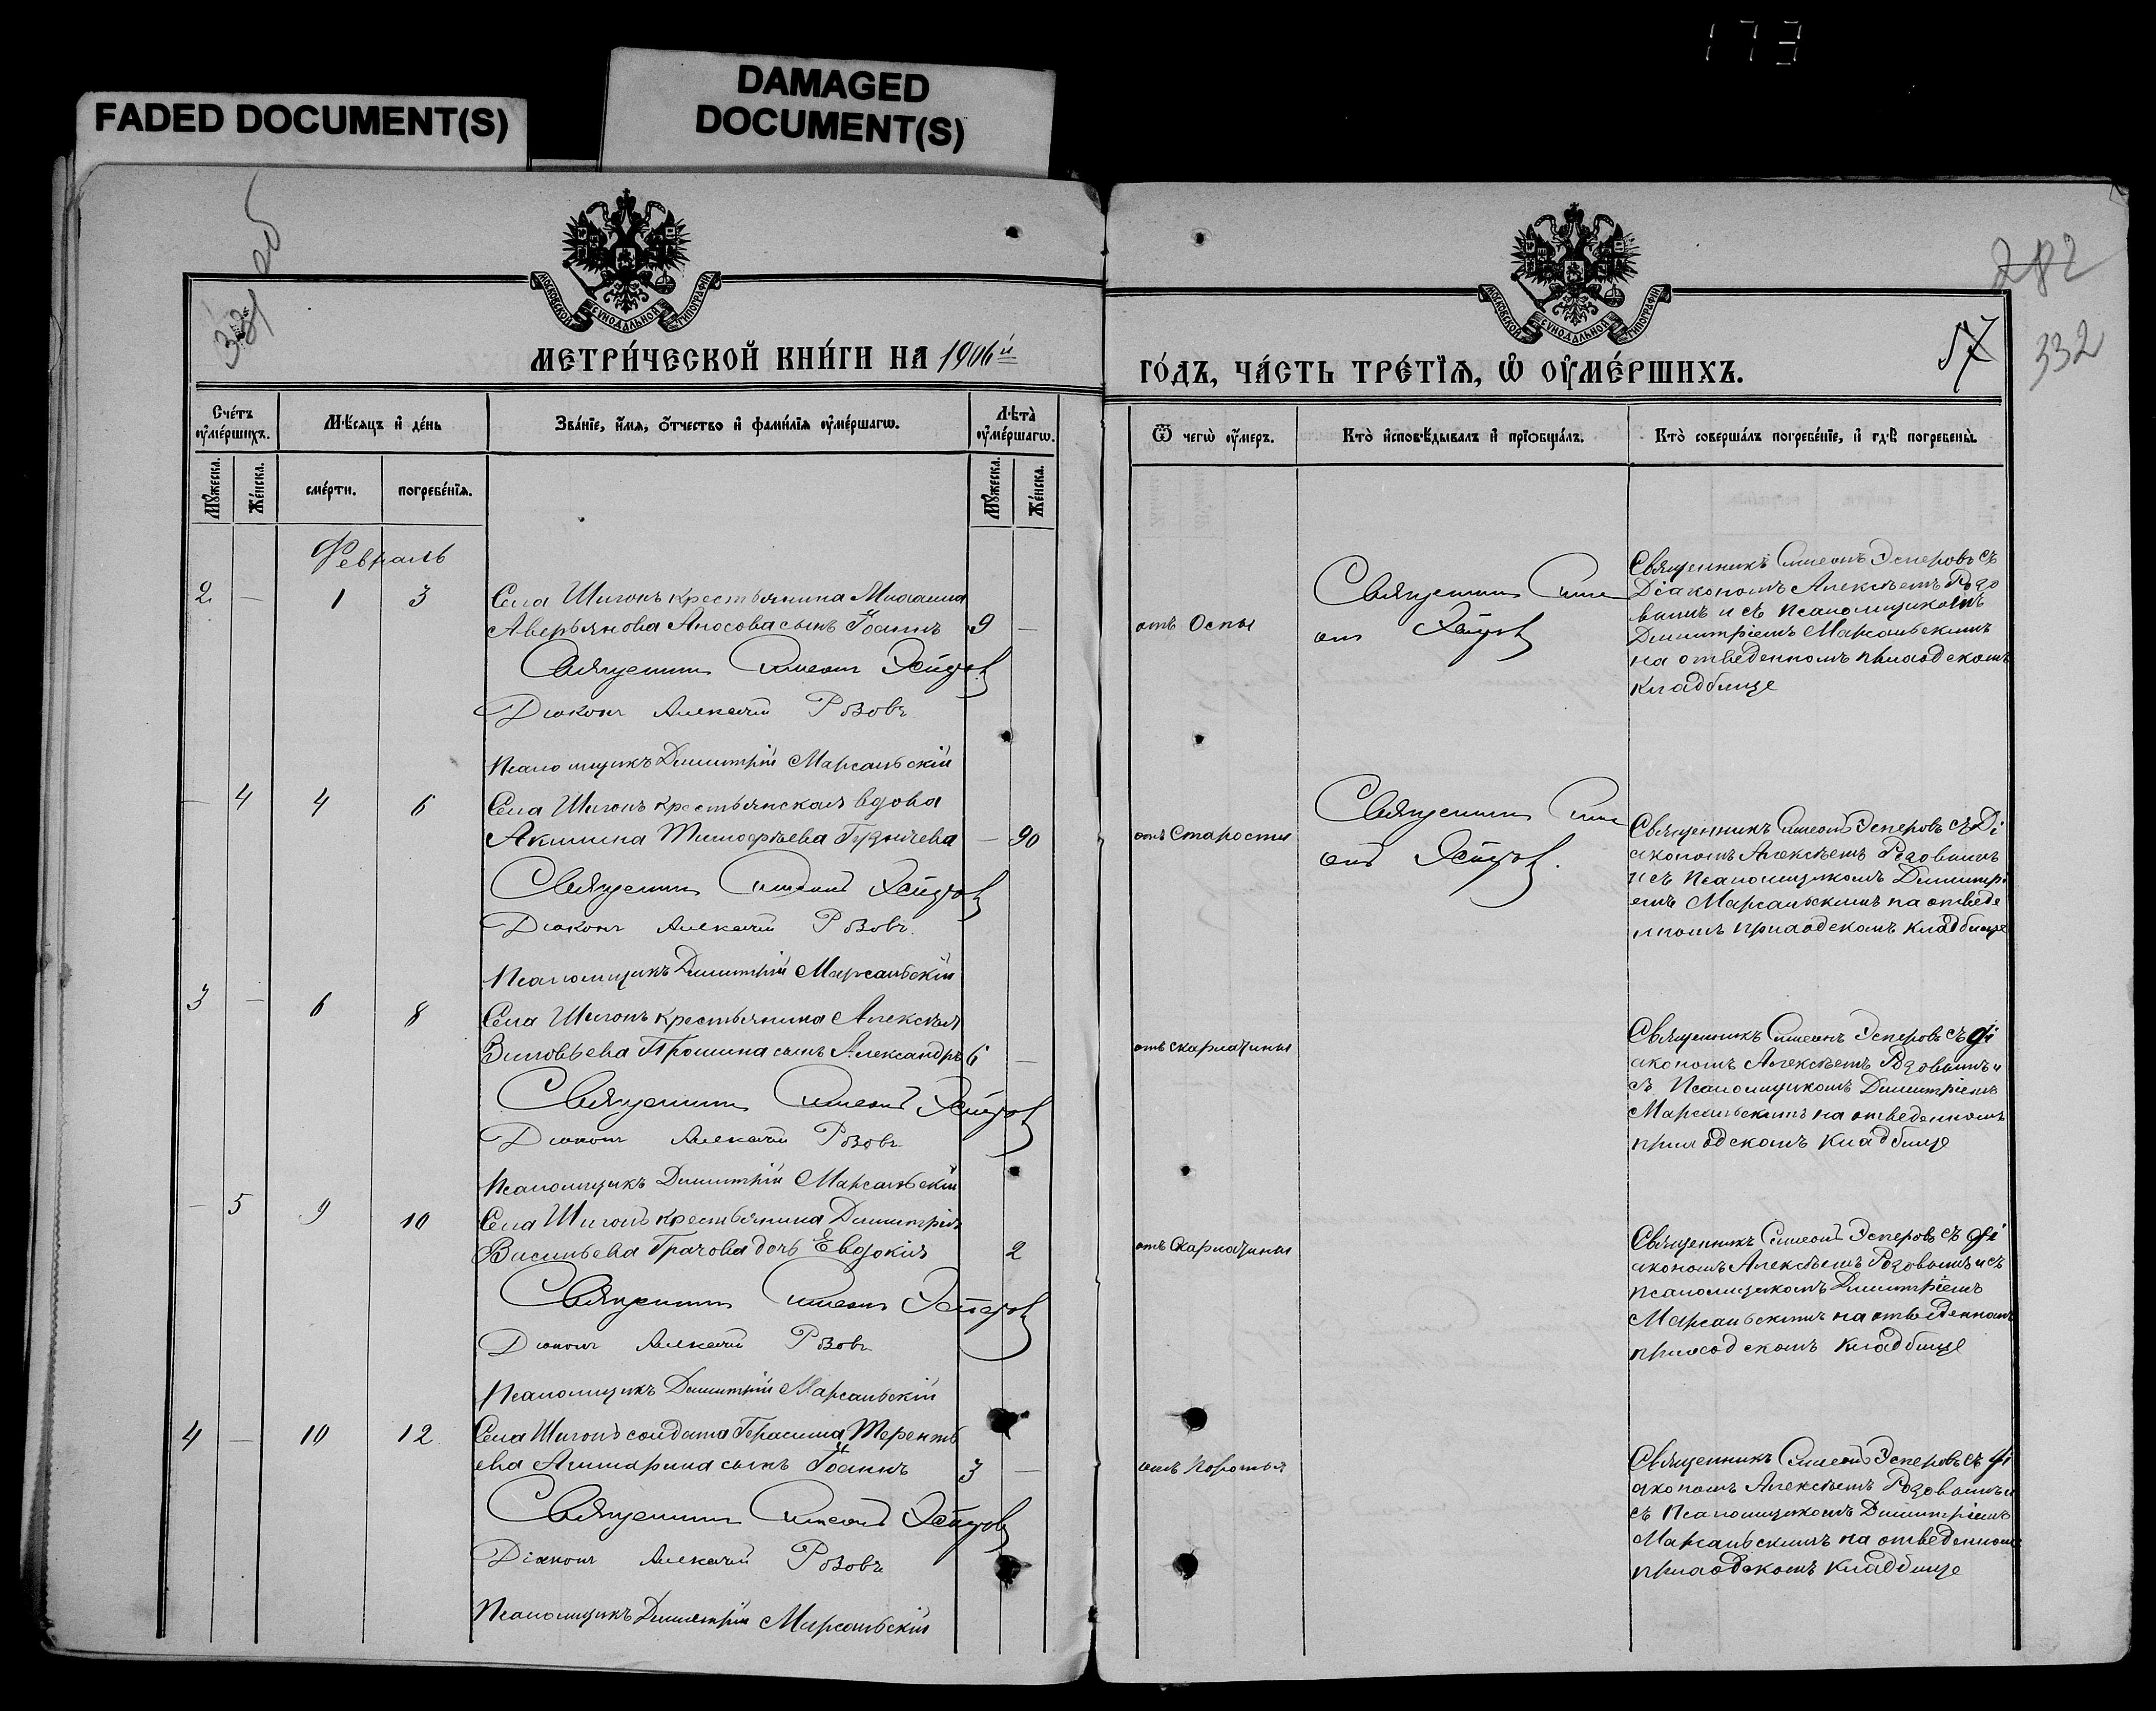 173
FADED DOCUMENT(S)
DAMAGED
DOCUMENT(S)
282
332
57
МОСКОВСКОЙ СѴНОДАЛЬНОЙ ТИПОГРАФІИ
МОСКОВСКОЙ СѴНОДАЛЬНОЙ ТИПОГРАФІИ
МЕТРИ́ЧЕСКОЙ КНИ́ГИ НА 1906й
ГО́ДЪ, ЧА́СТЬ ТРЕ́ТІѦ, Ѽ ОУМЕ́РШИХЪ.
Сче́тъ оуме́ршихъ.
Мѣсяцъ и де́нь
Зва́нїе, и́мя, о́тчество и фами́лїя оуме́ршагѡ.
Лѣта̀ оуме́ршагѡ.
Ѿ чегѡ̀ оу́меръ.
Кто̀ исповѣ́дывалъ и прїѡбща́лъ.
Кто̀ соверша́лъ погребе́нїе, и гдѣ̀ погребены̀.
Мꙋ́жеска.
Же́нска.
сме́рти.
погребе́нїя.
Мꙋ́жеска.
Же́нска.
Февраль
2 — 1 3 Села Шигонъ крестьянина Михаила
Аверьянова Аносова сынъ Іоаннъ 9 —
Священник Симеон Эсперов
Діаконъ Алексій Розовъ
Псаломщикъ Димитрій Марсальскій
отъ Оспы
Священник Симе
он Эсперов
Священникъ Симеонъ Эсперовъ съ
Діакономъ Алексѣемъ Розо
вымъ и съ псаломщикомъ
Димитріемъ Марсальскимъ
на отведенномъ приходскомъ
кладбище
— 4 4 6 Села Шигонъ крестьянская вдова
Акилина Тимофѣева — 90
Священник Симеонъ Эсперов
Діаконъ Алексій Розовъ
Псаломщикъ Димитрій Марсальскій
отъ Старости
Священник Симе
онъ Эсперов.
Священникъ Симеонъ Эсперовъ съ Ді
акономъ Алексѣемъ Розовымъ
и съ Псаломщикомъ Димитрі
емъ Марсальскимъ на отведе
нномъ приходскомъ кладбище
3 — 6 8 Села Шигонъ крестьянина Алексѣя
Зиновьева Прошина сынъ Александръ 6 —
Священник Симеонъ Эсперов
Діаконъ Алексій Розовъ
Псаломщикъ Димитрій Марсальскій
отъ скарлатины
Священникъ Симеонъ Эсперовъ съ ді
акономъ Алексѣемъ Розовымъ и
съ Псаломщикомъ Димитріемъ
Марсальскимъ на отведенномъ
приходскомъ кладбище
— 5 9 10 Села Шигонъ крестьянина Димитрія
Васильева Грачова дочь Евдокія 2
Священник Симеонъ Эсперов
Діаконъ Алексій Розовъ
Псаломщикъ Димитрій Марсальскій
отъ Скарлатины
Священникъ Симеонъ Эсперовъ съ ді
акономъ Алексѣемъ Розовымъ и съ
псаломщикомъ Димитріемъ
Марсальскимъ на отведенномъ
приходскомъ кладбище
4 — 10 12 Села Шигонъ солдата Герасима Терентъ
ева сынъ Іоаннъ 3 —
Священник Симеонъ Эсперовъ
Діаконъ Алексій Розовъ
Псаломщикъ Димитрій Марсальскій
отъ Коротья
Священникъ Симеонъ Эсперовъ съ ді
акономъ Алексѣемъ Розовымъ и
съ Псаломщикомъ Димитріемъ
Марсальскимъ на отведенномъ
приходскомъ кладбище